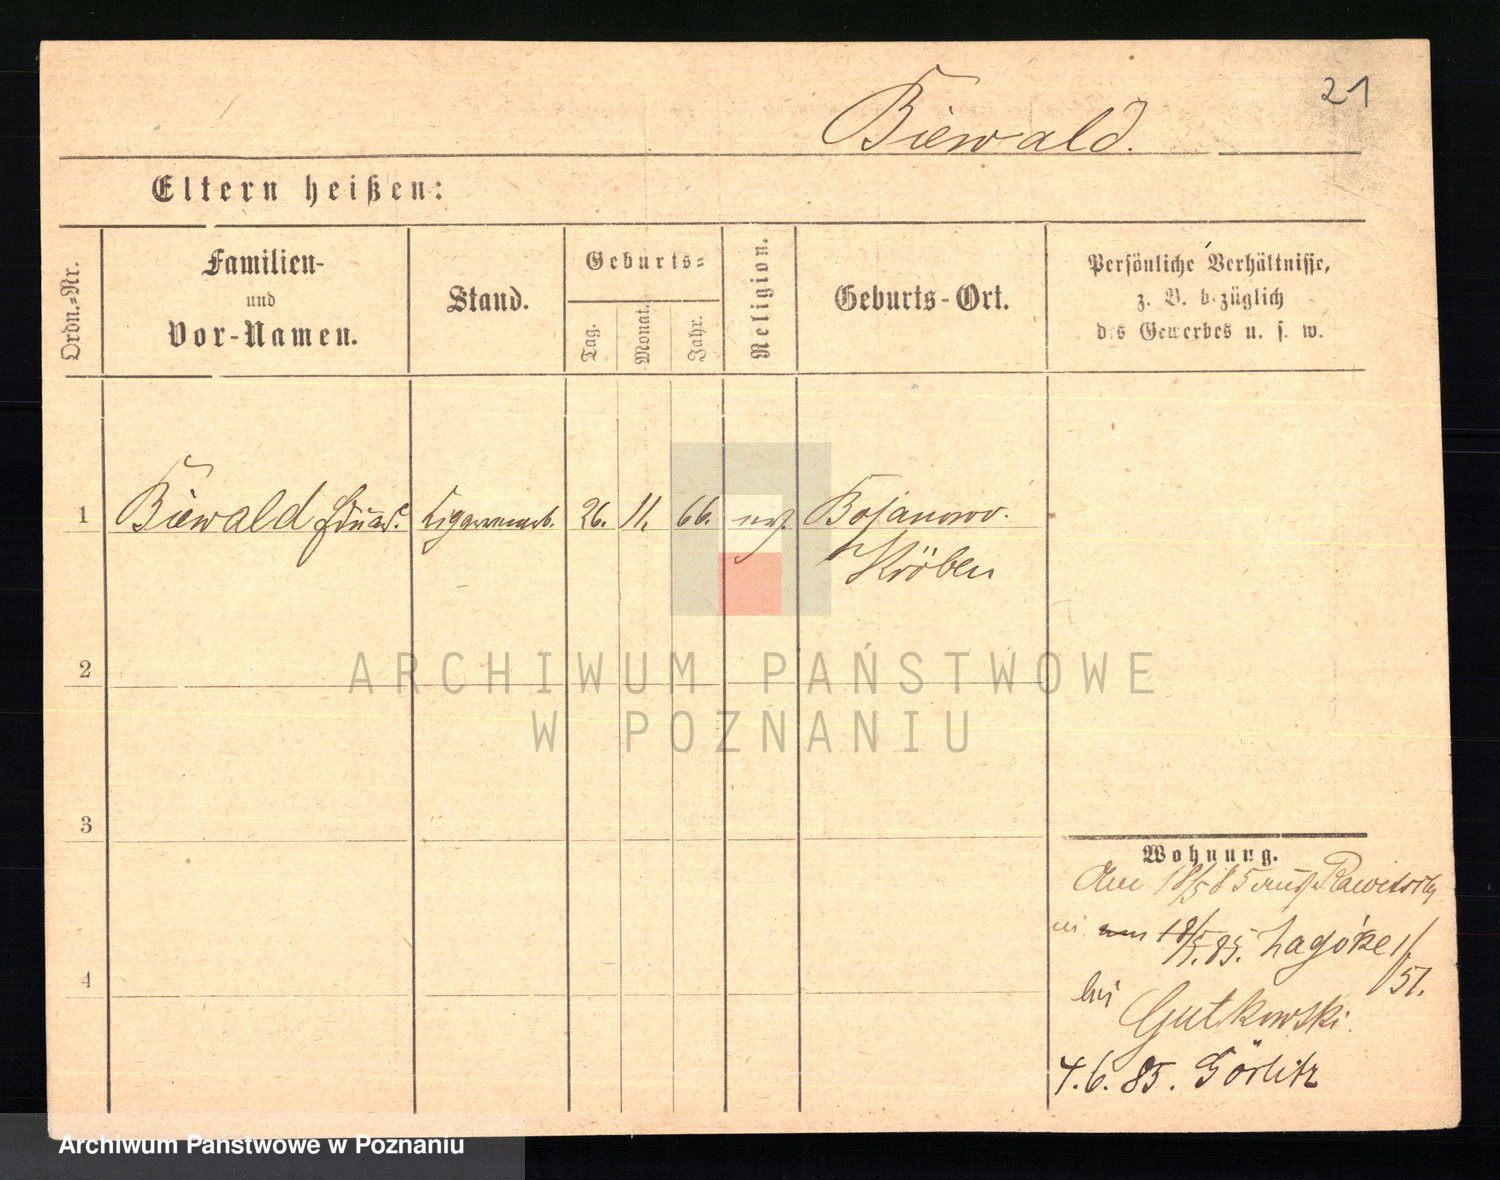 21
Biewald.
Eltern heißen:
Ordn.-Nr.
Familien-
und
Vor-Namen.
Stand.
Geburts-
Tag.
Monat.
Jahr.
Religion.
Geburts-Ort.
Persönliche Verhältnisse,
z. B. bezüglich
des Gewerbes u. s. w.
1 Biewald Eduard. Cigarrenarb. 26. 11. 66. Bojanowo.
Kröben
2
ARCHIWUM PAŃSTWOWE
W POZNANIU
3
Wohnung.
Am 18/5 85 aus Rawitsch
18/5. 85. Zagórze 1/
51.
bei
Gutkowski.
4. 6. 85. Görlitz
4
Archiwum Państwowe w Poznaniu